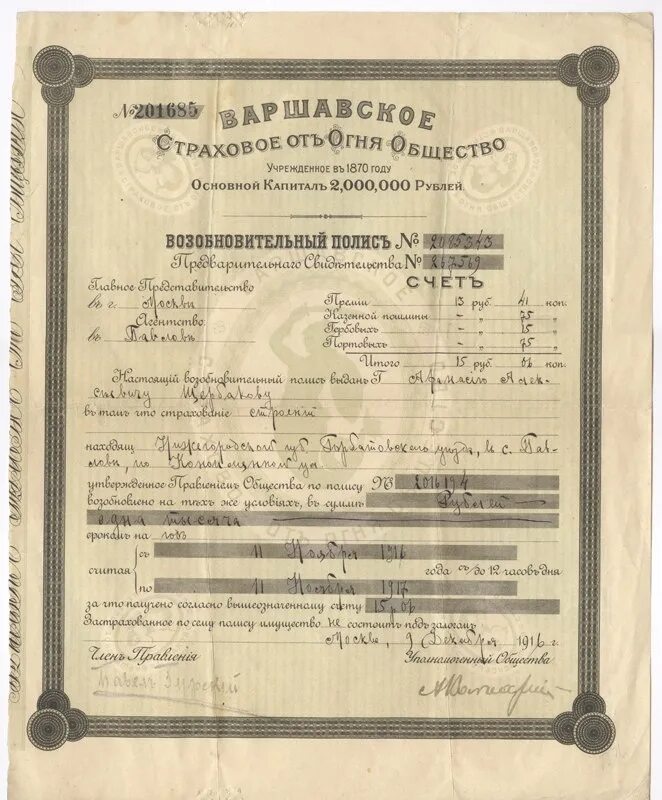 № 201685
ВАРШАВСКОЕ
СТРАХОВОЕ ОТЪ ОГНЯ ОБЩЕСТВО
УЧРЕЖДЕННОЕ ВЪ 1870 ГОДУ
ОСНОВНОЙ КАПИТАЛЪ 2,000,000 РУБЛЕЙ.
ВОЗОБНОВИТЕЛЬНЫЙ ПОЛИСЪ №
Предварительнаго Свидѣтельства № 267569
СЧЕТЪ
Главное Представительство
въ г. Москвѣ
Агентство
въ Павловѣ
Преміи 13 руб. 41 коп.
Казенной пошлины - „ 75 „
Гербовыхъ - „ 15 „
Портовыхъ - „ 75 „
Итого 15 руб. 06 коп.
Настоящій возобновительный полисъ выданъ Г Афанасію Алек-
сѣевичу Щербакову
въ томъ что страхованіе строеній
находящ Нижегородской губ. Горбатовского уѣзда, въ с. Пав-
ловѣ, по ул.
утвержденное Правленіемъ Общества по полису № 2016194
возобновлено на тѣхъ же условіяхъ, въ суммѣ Рублей
одна тысяча
срокомъ на годъ
считая съ 11 Ноября 1916
по 11 Ноября 1917
года съ/до 12 часовъ дня
за что получено согласно вышеозначенному счету 15 р 06
Застрахованное по сему полису имущество не состоитъ подъ залогомъ
Москва, 9 Декабря 1916 г.
Членъ Правленія
Уполномоченный Общества
Павелъ Гурскій